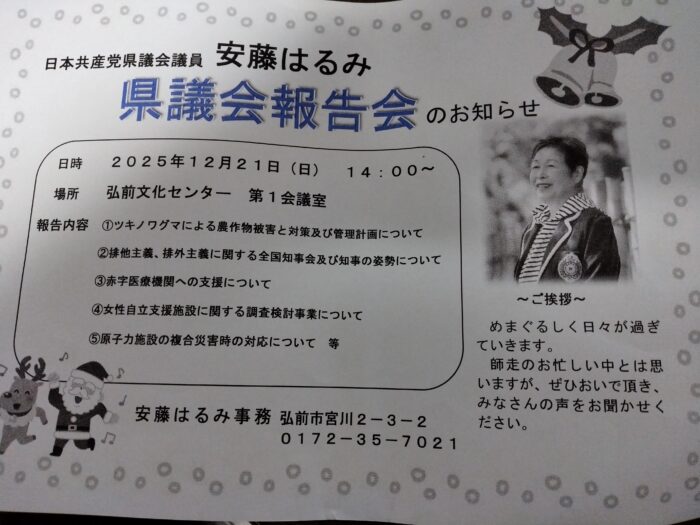 日本共産党県議会議員 安藤はるみ
県議会報告会のお知らせ
日時 2025年12月21日（日） 14：00～
場所 弘前文化センター 第１会議室
報告内容 ①ツキノワグマによる農作物被害と対策及び管理計画について
②排他主義、排外主義に関する全国知事会及び知事の姿勢について
③赤字医療機関への支援について
④女性自立支援施設に関する調査検討事業について
⑤原子力施設の複合災害時の対応について 等
～ご挨拶～
めまぐるしく日々が過ぎ
ていきます。
師走のお忙しい中とは思
いますが、ぜひおいで頂き、
みなさんの声をお聞かせく
ださい。
安藤はるみ事務 弘前市宮川２－３－２
０１７２－３５－７０２１